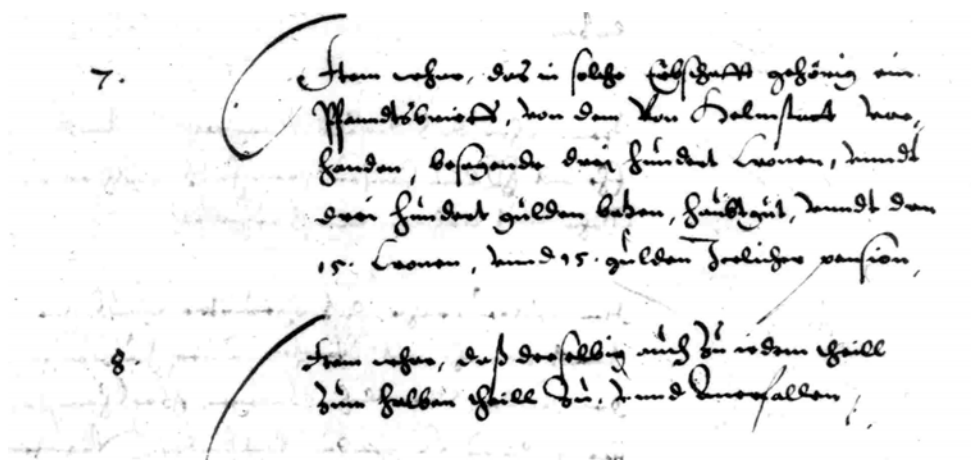 7. Item wahr, das in solche Erbschafft gehörig ein
Pfandtsbrieff, von dem Von Helmstatt vor,
handen, besagende drei hundert Cronen, vnndt
drei hundert gulden batzen, haubtgut, vnndt dan
15. Cronen, vnnd 15. gulden Jerlicher pension,
8. Item wahr, daß derselbig auch zu iedem theill
zum halben theill zu, vnnd